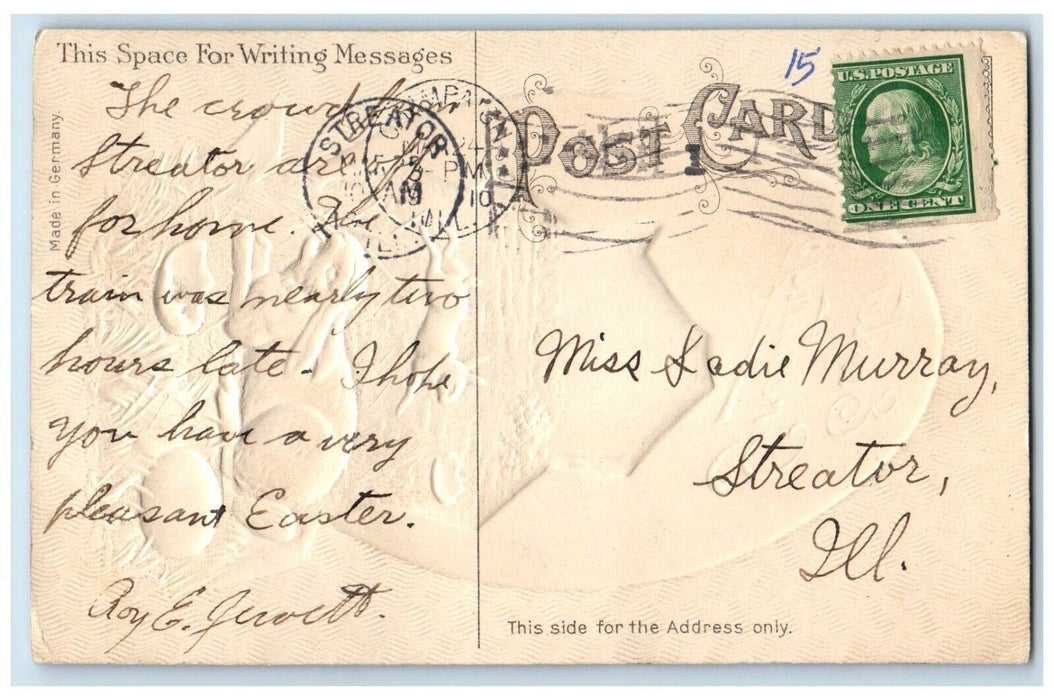 This Space For Writing Messages
Made in Germany.
The crowd from
Streator are
for home. The
train was nearly two
hours late. I hope
you have a very
pleasant Easter.
Roy E. Jewett.
POST CARD
15
U.S. POSTAGE
ONE CENT
STREATOR
AM
ILL.
PM
10
1
Miss Sadie Murray,
Streator,
Ill.
This side for the Address only.